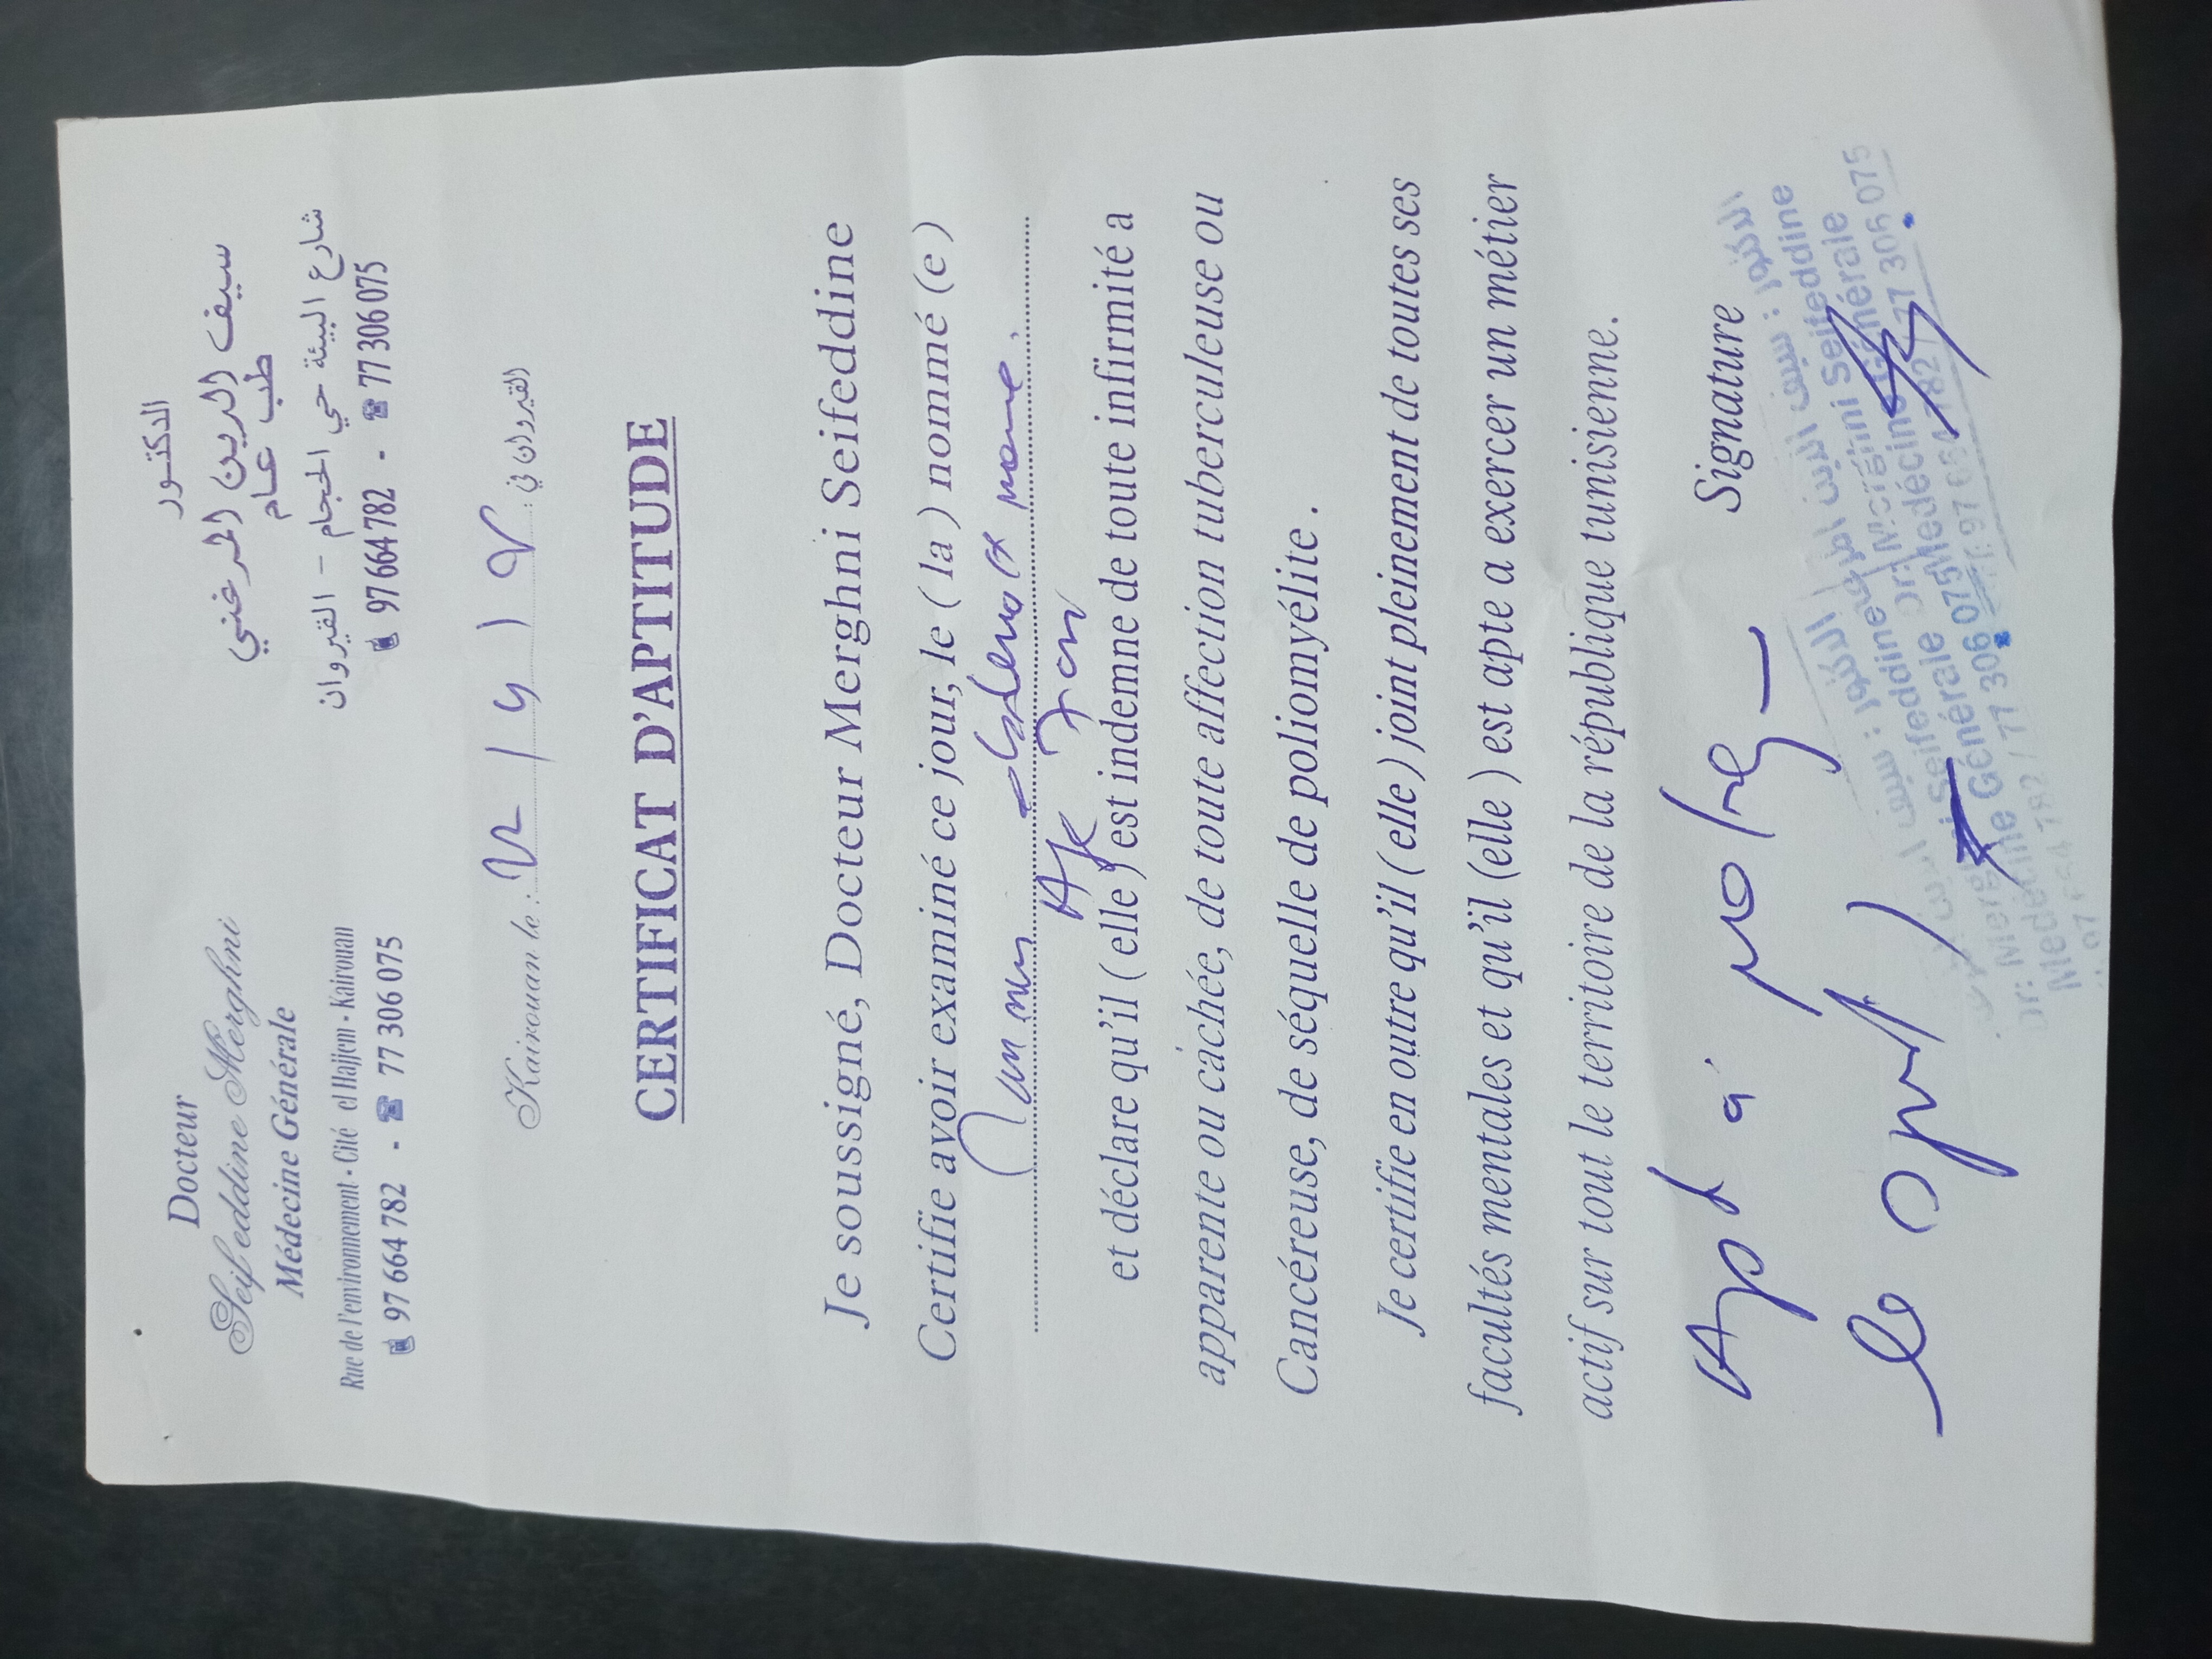 Docteur
Seifeddine Merghni
Médecine Générale
Rue de l'environnement - Cité el Hajjem - Kairouan
97 664 782 - 77 306 075
الدكتور
سيف الدين المرغني
طب عام
شارع البيئة حي الحجام - القيروان
97 664 782 - 77 306 075
Kairouan le : القيروان في :
CERTIFICAT D'APTITUDE
Je soussigné, Docteur Merghni Seifeddine
Certifie avoir examiné ce jour, le ( la ) nommé (e)
et déclare qu'il ( elle ) est indemne de toute infirmité a
apparente ou cachée, de toute affection tuberculeuse ou
Cancéreuse, de séquelle de poliomyélite .
Je certifie en outre qu'il ( elle) joint pleinement de toutes ses
facultés mentales et qu'il (elle ) est apte a exercer un métier
actif sur tout le territoire de la république tunisienne.
Signature
à
le
الدكتور : سيف الدين المرغني
Dr: Merghni Seifeddine
Medecine Générale
77 306 075